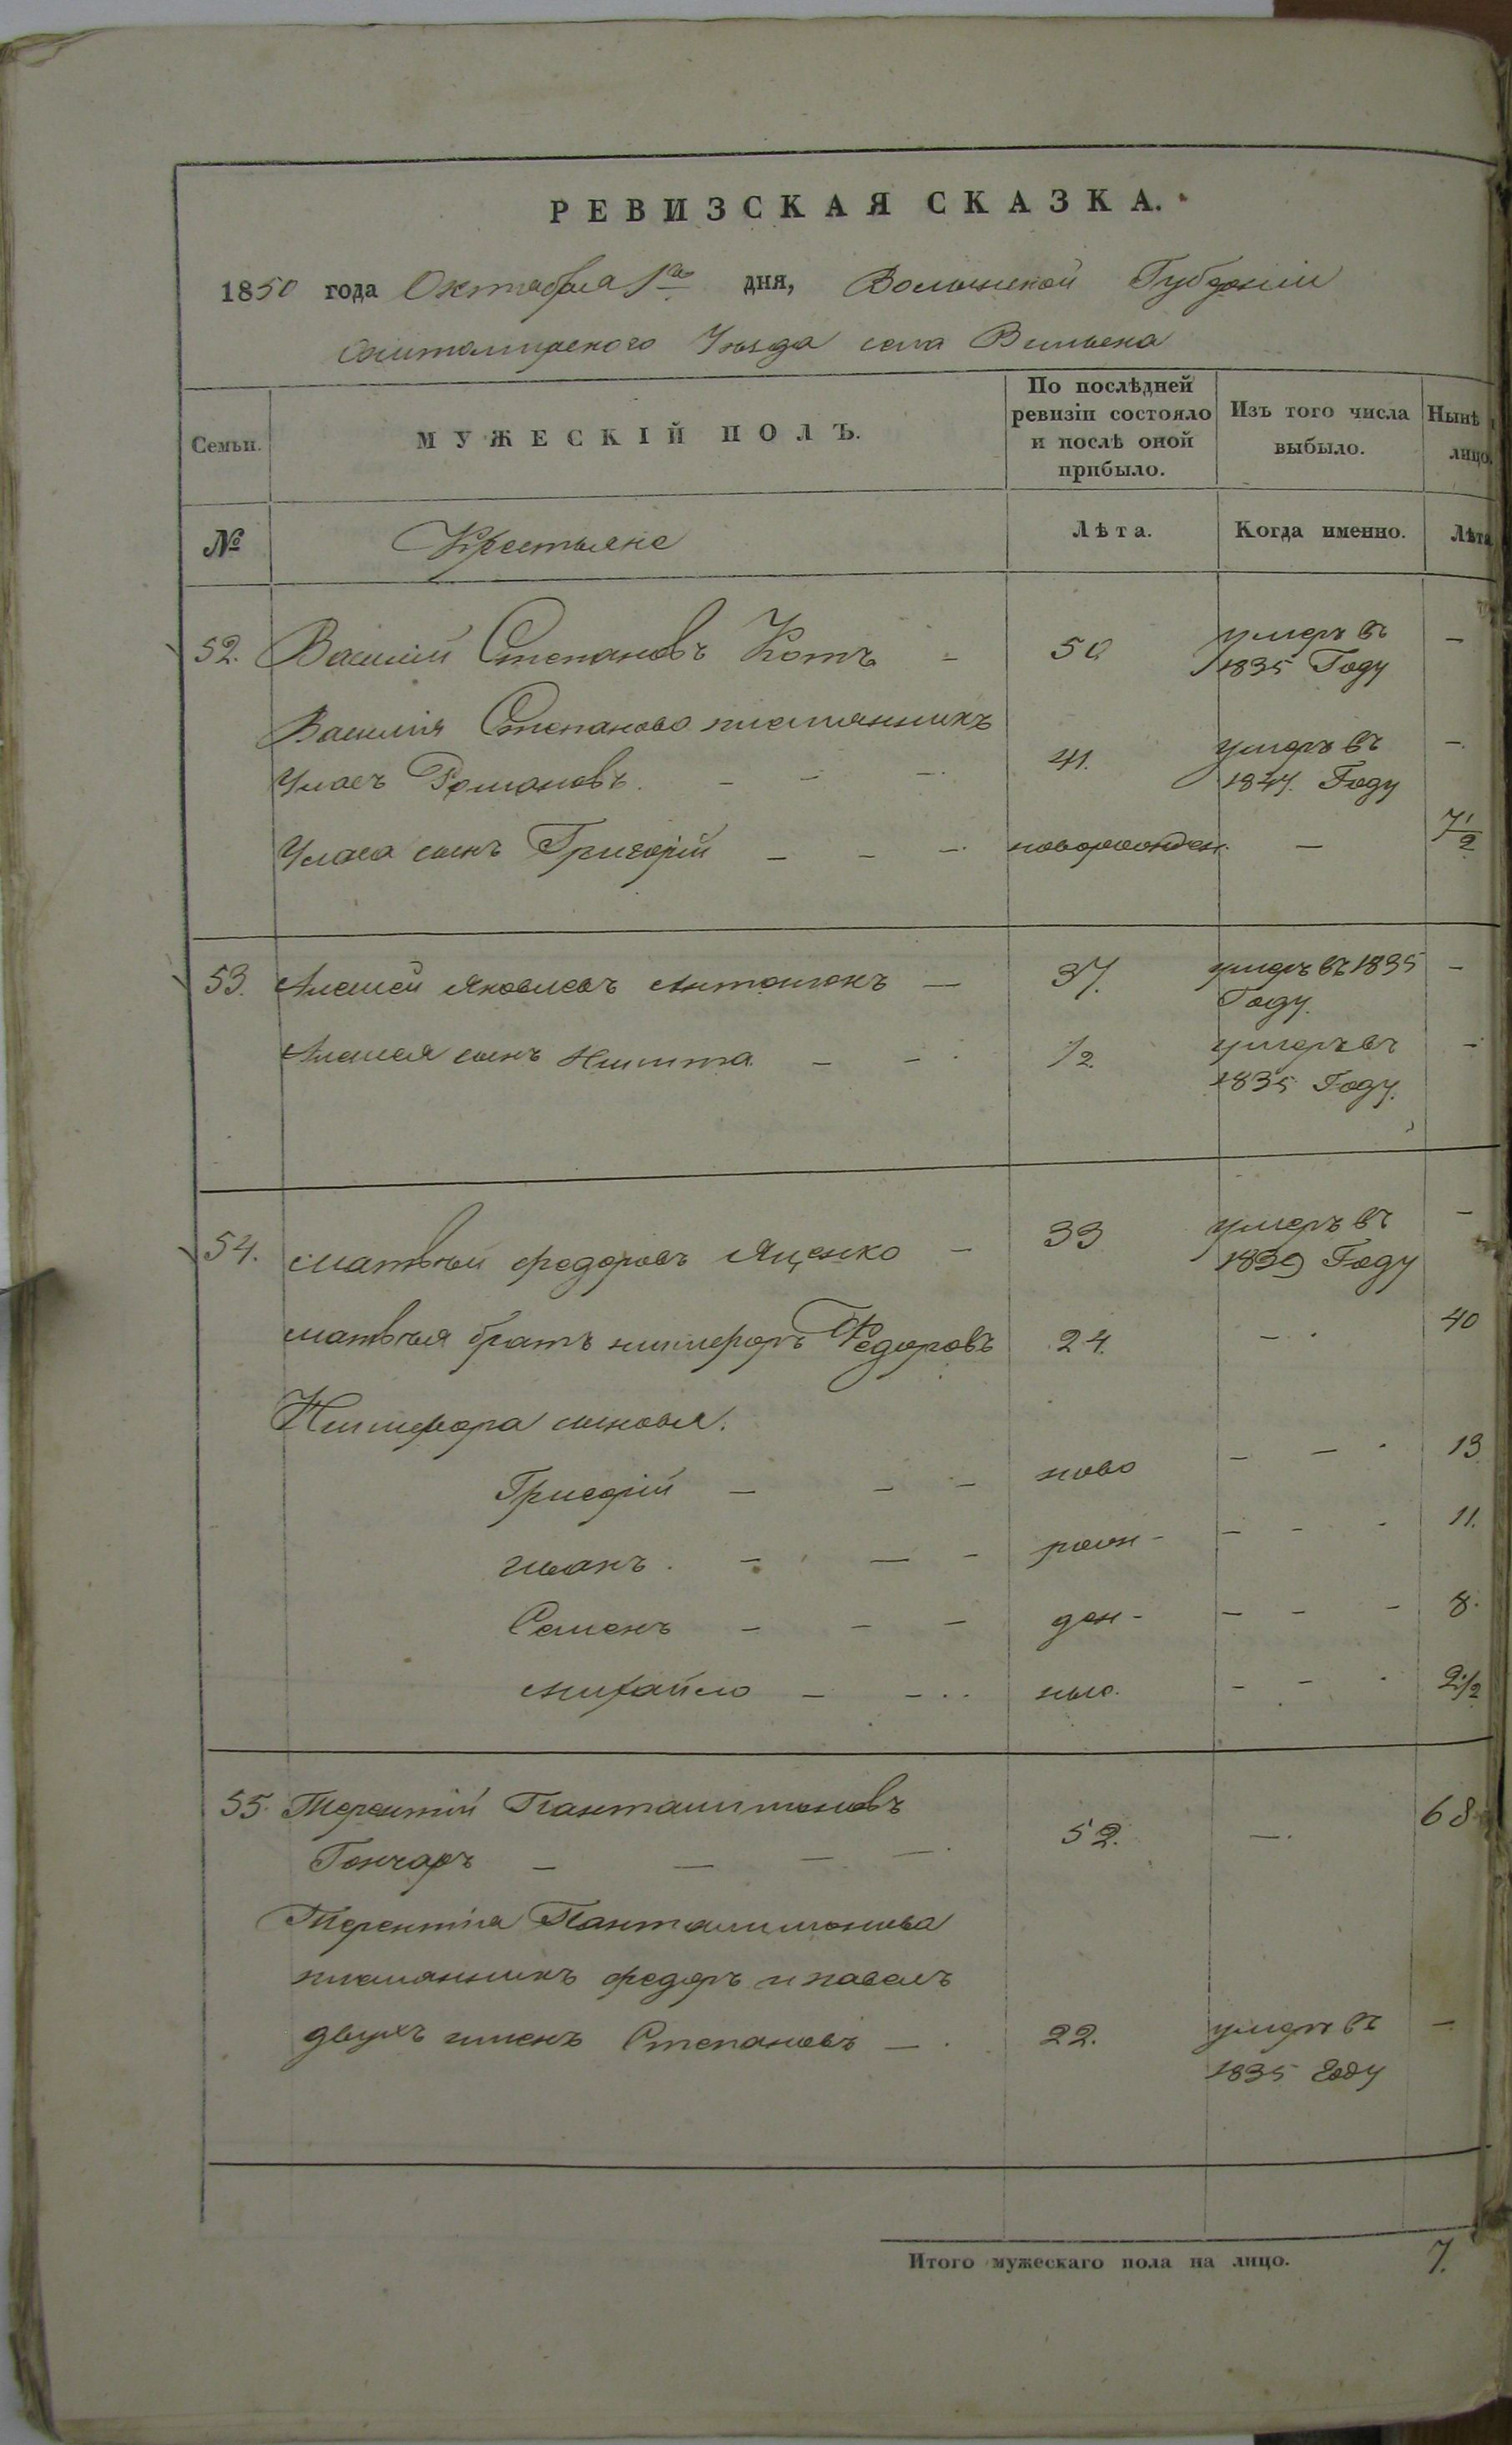 РЕВИЗСКАЯ СКАЗКА.
1850 года Октября 1го дня, Волынской Губерніи
Житомирского Уезда села Вильска
Семьи. МУЖЕСКІЙ ПОЛЪ. По послѣдней ревизіи состояло и послѣ оной прибыло. Изъ того числа выбыло. Нынѣ лицо.
№ Крестьяне Лѣта. Когда именно. Лѣта
52. Василій Степановъ Котъ - 50 умеръ въ 1835 Году -
Василія Степанова племянникъ
Уласъ Романовъ. - - - 41. умеръ въ 1847. Году -
Уласа сынъ Григорій - - - новорожден. - 7 1/2
53. Алексей Яковлевъ Антонюкъ - 37. умеръ въ 1835 Году. -
Алексея сынъ Никита - - 1/2 умеръ въ 1835 Году. -
54. Матвѣй Федоровъ Яценко - 33 умеръ въ 1839 Году -
Матвѣя братъ Никифоръ Федоровъ 24. - 40
Никифора сыновья.
Григорій - - - ново - - 13
Иванъ. - - - рож- - - - 11.
Семенъ - - - ден- - - - 8.
Михайло - - ные. - - 2 1/2
55. Терентій Панталимоновъ
Гончаръ - - - - 52. - 68
Терентія Панталимонова
племянникъ Федоръ и Павелъ
двухъ именъ Степановъ - 22. умеръ въ 1835 Году -
Итого мужескаго пола на лицо. 7.